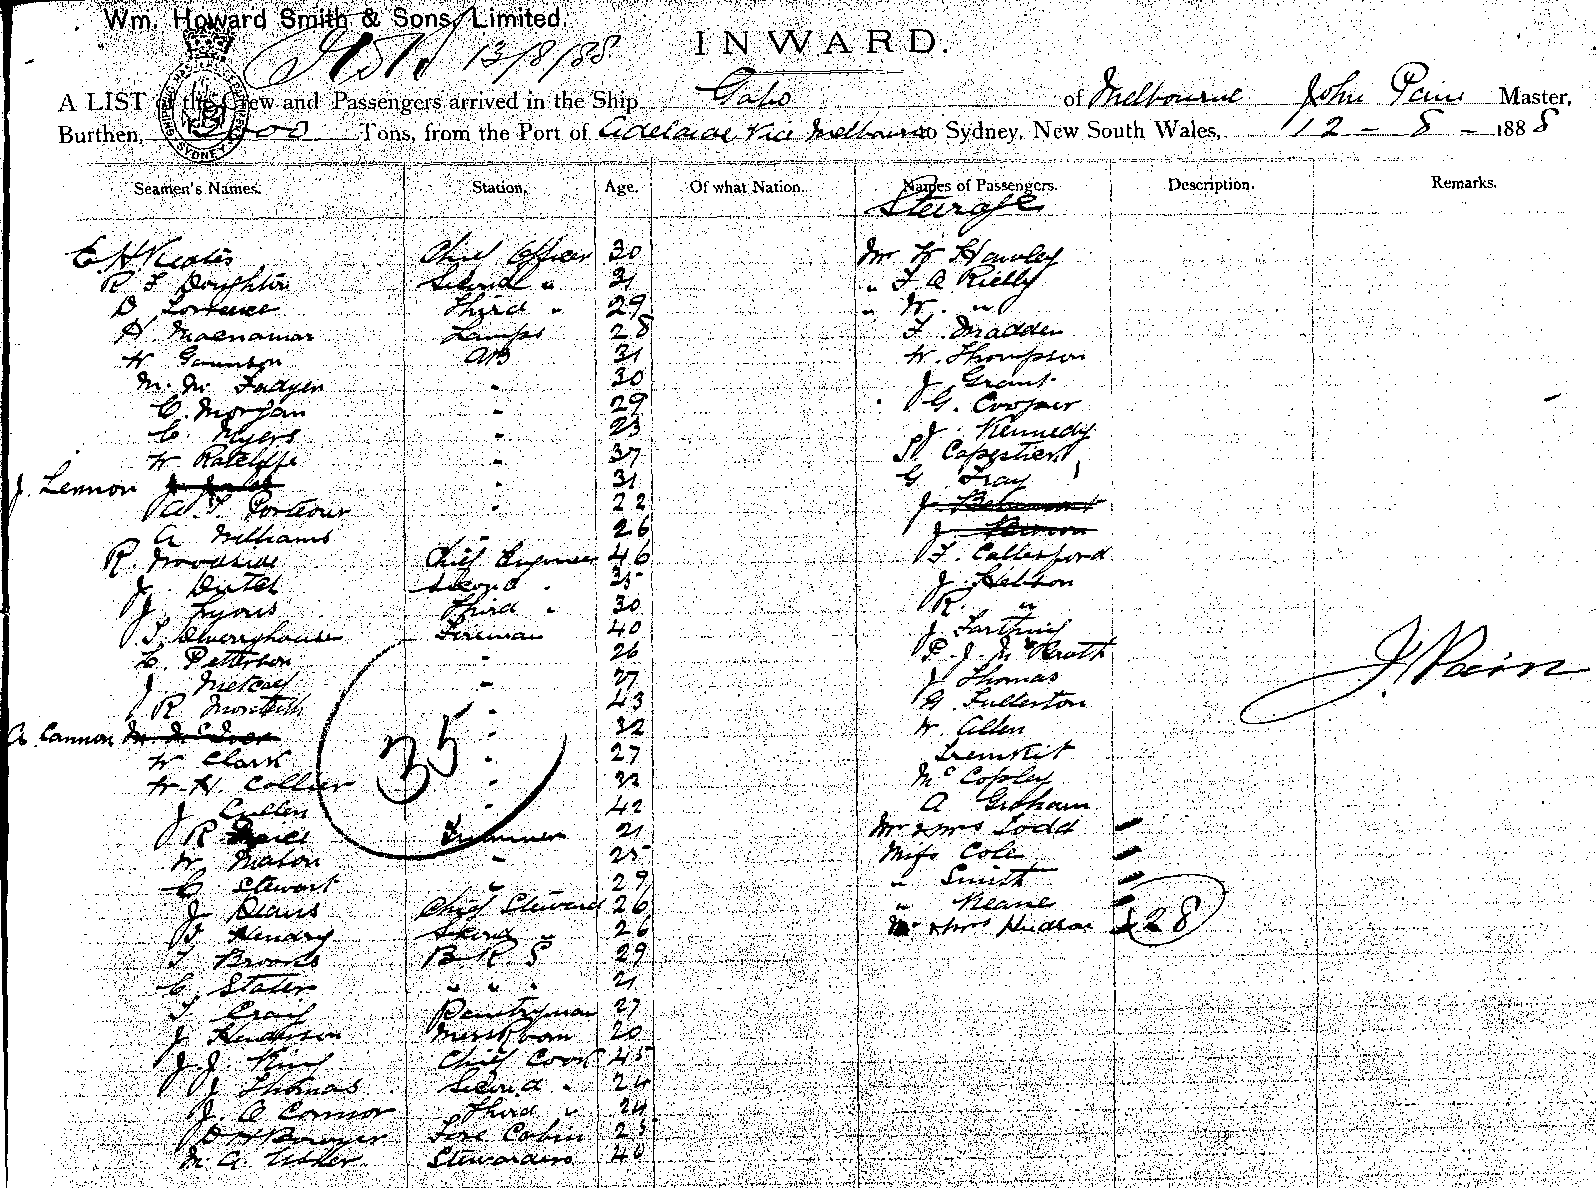 Wm. Howard Smith & Sons, Limited.
13/8/88
INWARD.
A LIST of the Crew and Passengers arrived in the Ship Gabo of Melbourne John Pain Master,
Burthen, 3000 Tons, from the Port of Adelaide via Melbourne to Sydney, New South Wales, 12 - 8 - 1888
Seamen's Names. Station. Age. Of what Nation. Names of Passengers. Description. Remarks.
Steerage
E H Keates Chief Officer 30 Mr W Hawley
R F Doughton Second " 31 " F A Rielly
D Lorraine Third " 29 " W. "
H Macnamar Lamps 28 F Madden
W Gunnson AB 31 W. Thompson
M. Mc Fadyen " 30 J Grant
C. Morgan " 29 G. Cooper
C. Myers " 23 J. Kennedy
W Ratcliffe " 37
J. Lennon " 31 G Fray
W. F. Porteous " 22
A Williams " 26
R. Woodside Chief Engineer 46 F. Callesford
J. Second " J Hebson
J. Lyons Third " 30 R. "
Fireman 40 J. Farthing
C. Petterson " 26 P. J. McGrath
J Metcalf " 27 J Thomas
R. Monteith " 43 G. Fullerton
A. Cannon " 32 W. Allen
W Clark " 27
W. H. Collier " 33 Mc Copley
J Cullen " 42 A Graham
R Trimmer 21 Mr & Mrs Todd
W. Maton " 25 Miss Cole
C Stewart " 29 " Smith
J Deans Chief Steward 26 " Keane
D Hendry Second " 26 Mr & Mrs Hudson
F Brooks B R S 29
C. Slater " " " 21
T Craig Pantryman 27
J Henderson Mess Room 20
J J. King Chief Cook 45
J Thomas Second " 24
J. O Connor Third " 24
D H Bowyer Fore Cabin 25
M A Usher Stewardess 40
35
28
J. Pain